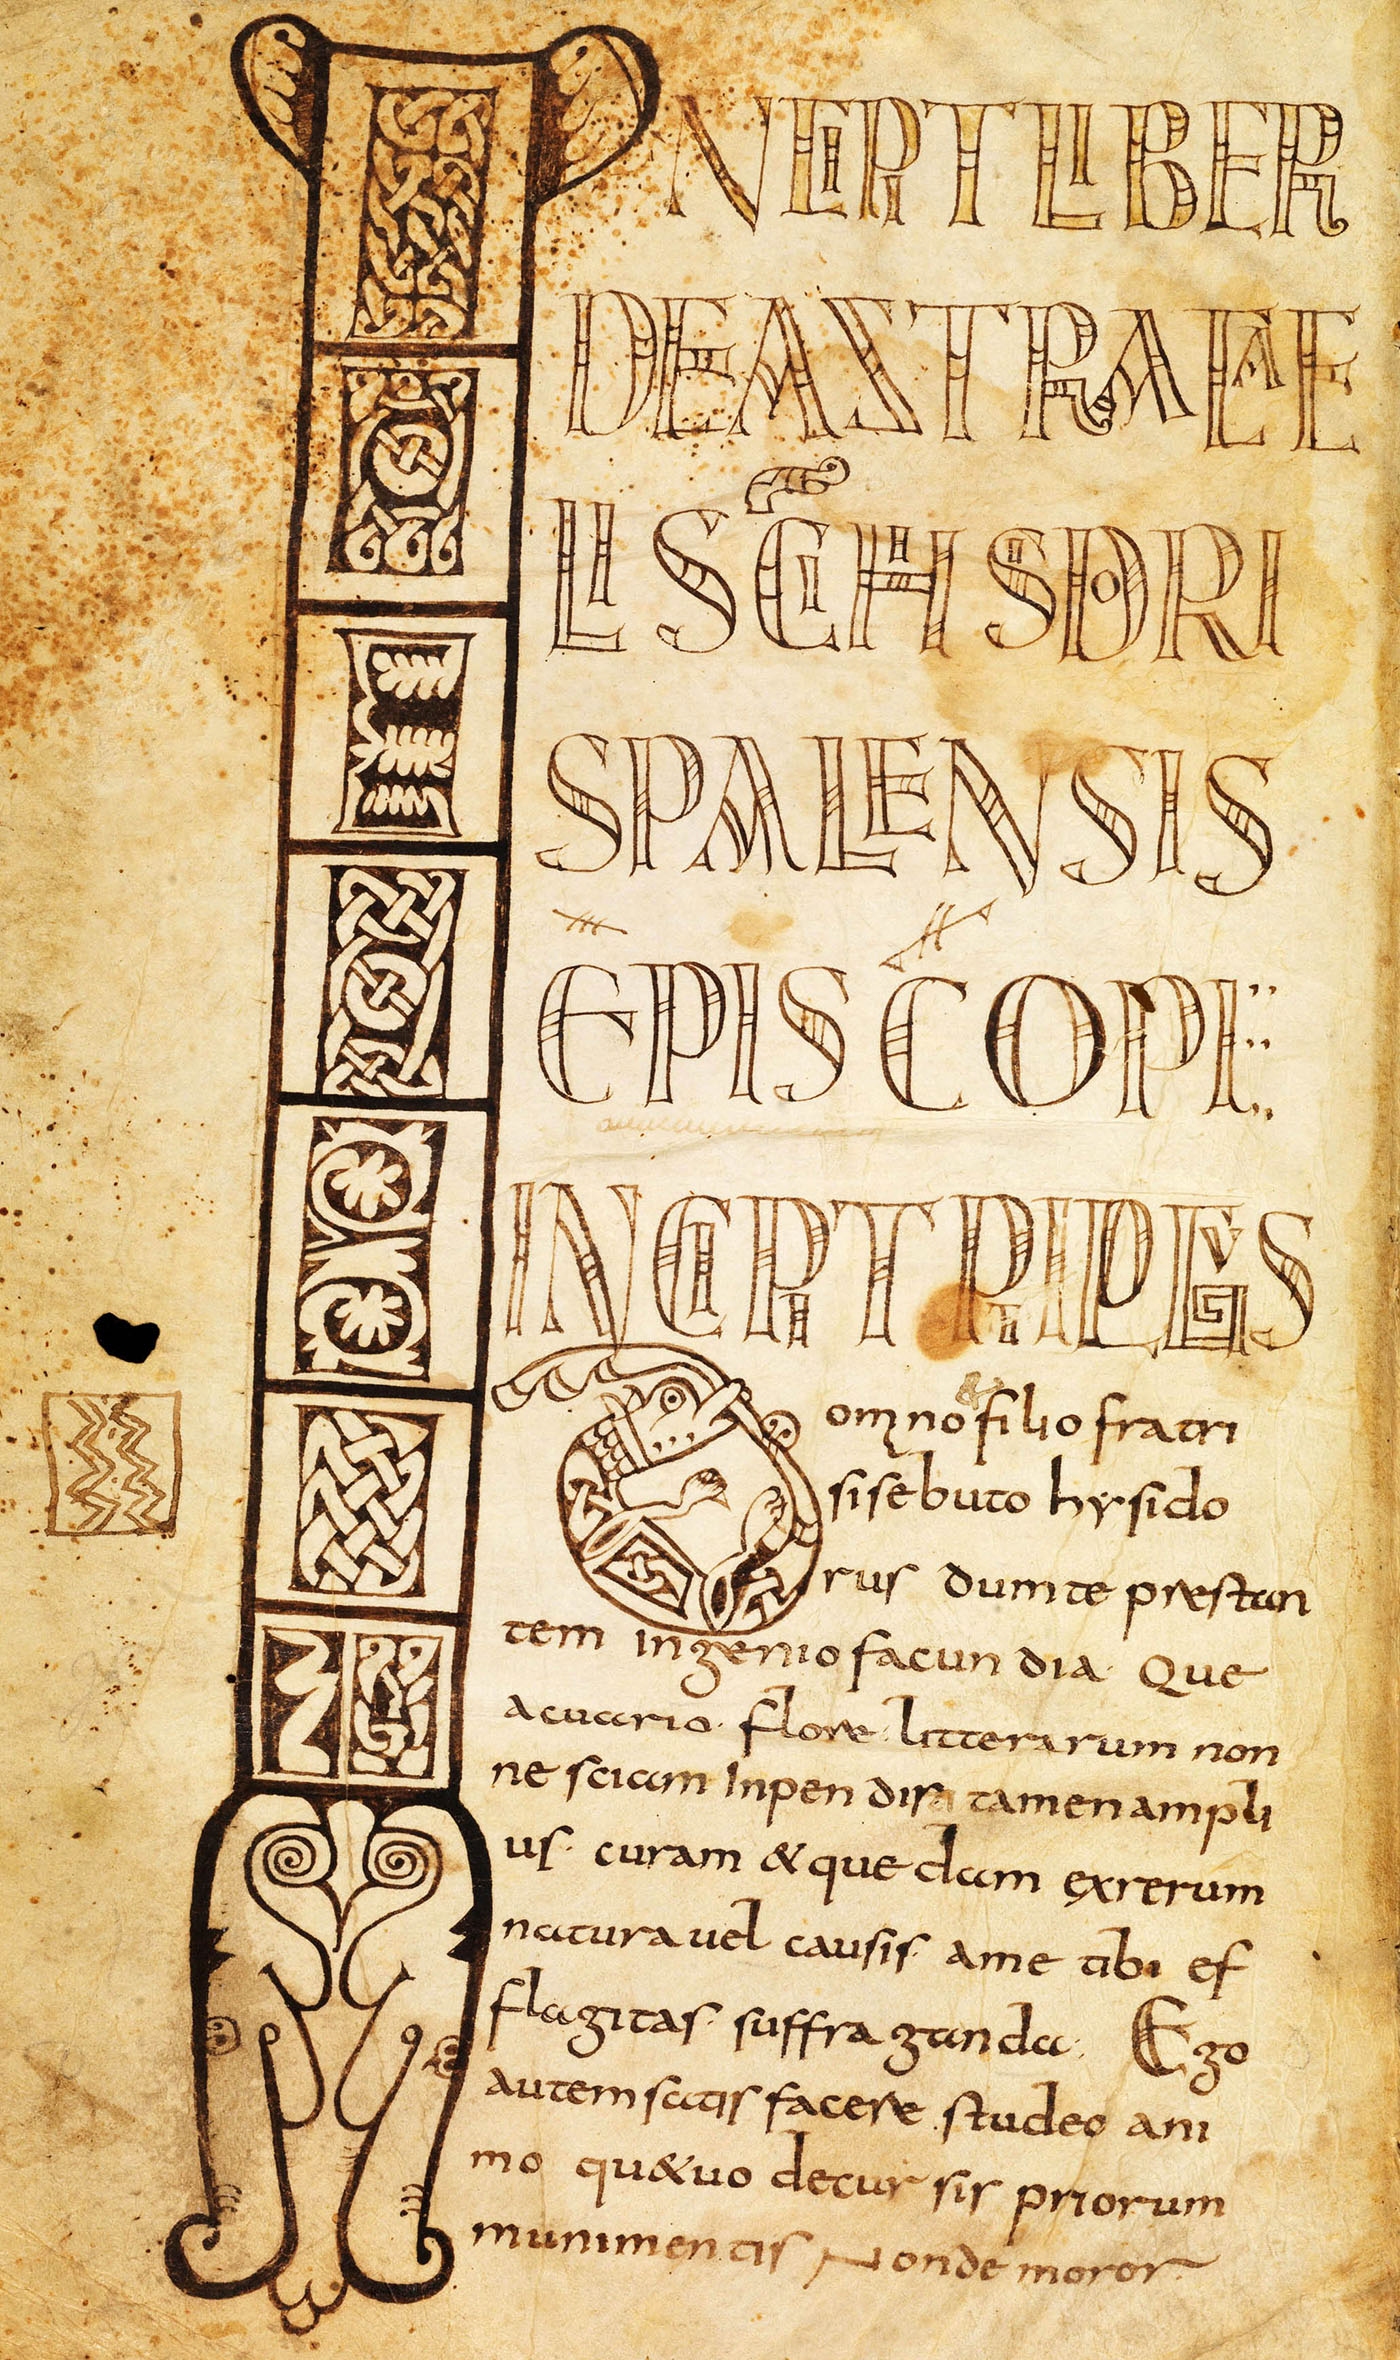 INCIPIT LIBER
DE ASTRA CAE
LI SCI HISIDORI
SPALENSIS
EPISCOPI
INCIPIT
Domno & filio fratri
sisebuto hysido
rus dum te prestan
tem ingenio facundia· Que
acuario· flore litterarum non
nesciam inpendis tamen ampli
us· curam & quedam ex rerum
natura uel causis· a me tibi ef
flagitas· suffraganda· Ego
autem satis facere studeo ani
mo qu&uo decursis priorum
munimentis Non demoror